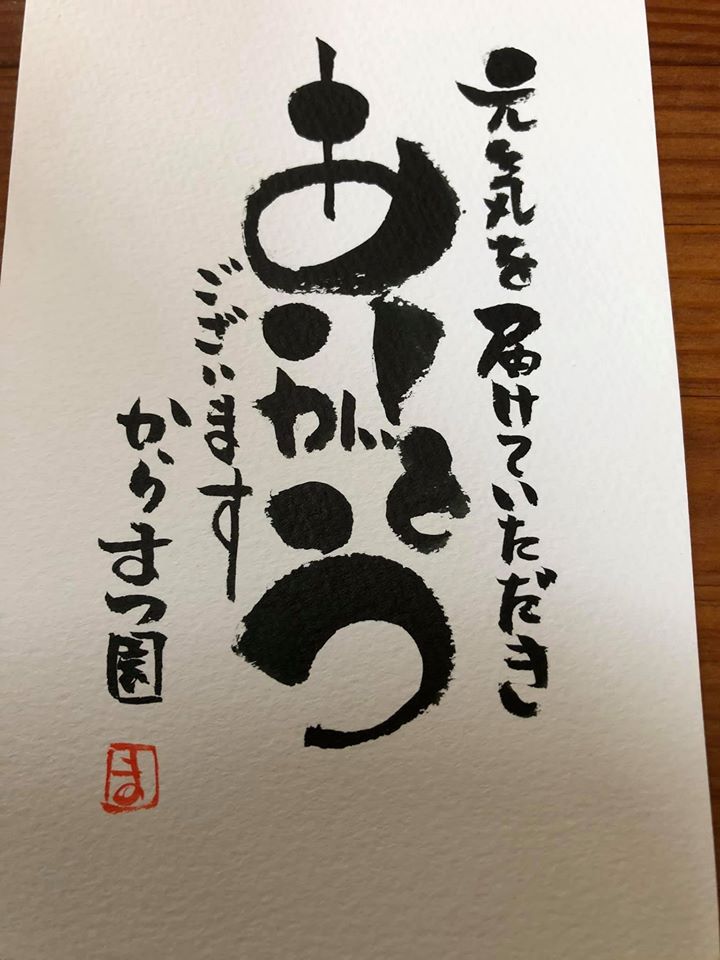 元気を届けていただき
ありがとう
ございます
からまつ園
ま